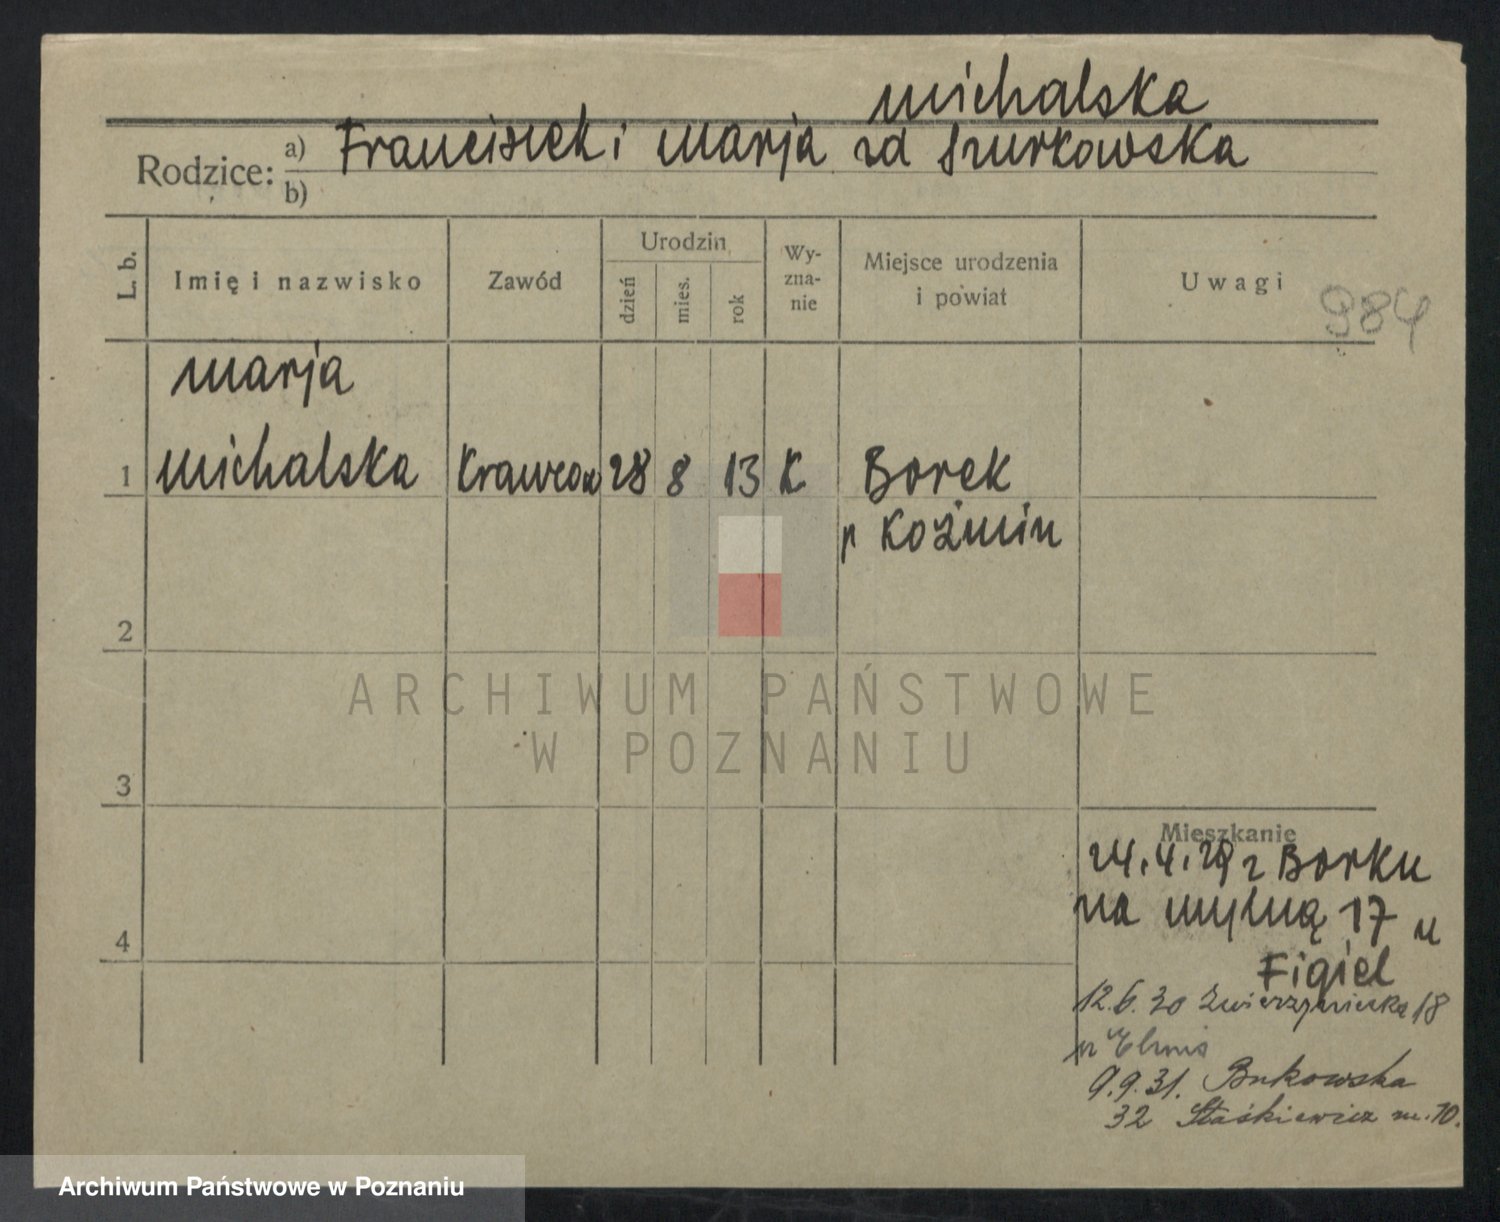 Michalska
Rodzice: a) Franciszek i Marja zd Szurkowska
b)
L. b.
Imię i nazwisko
Zawód
Urodzin
dzień
mies.
rok
Wy-
zna-
nie
Miejsce urodzenia
i powiat
Uwagi
984
Marja
1 Michalska Krawcow 28 8 13 K Borek
p Koźmin
2
3
4
Mieszkanie
24.4.29 z Borku
na Mylną 17 u
Figiel
12.6.30 Zwierzyniecka 18
9.9.31. Bukowska
32 Staśkiewicz m. 10.
ARCHIWUM PAŃSTWOWE
W POZNANIU
Archiwum Państwowe w Poznaniu